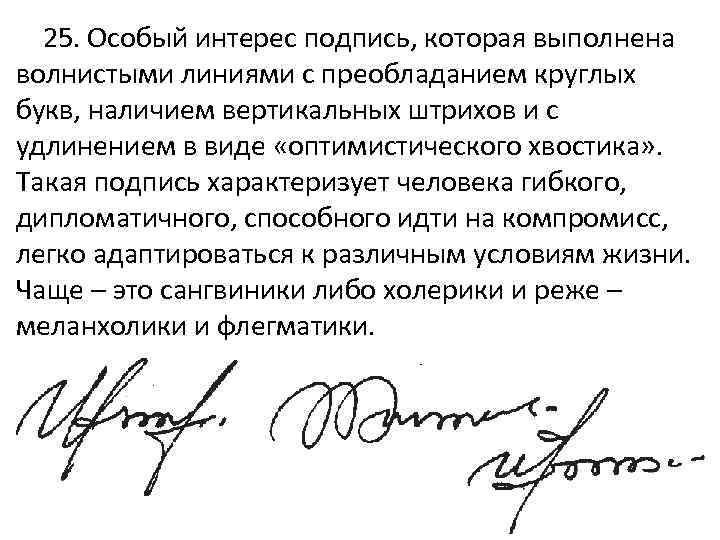 25. Особый интерес подпись, которая выполнена
волнистыми линиями с преобладанием круглых
букв, наличием вертикальных штрихов и с
удлинением в виде «оптимистического хвостика».
Такая подпись характеризует человека гибкого,
дипломатичного, способного идти на компромисс,
легко адаптироваться к различным условиям жизни.
Чаще – это сангвиники либо холерики и реже –
меланхолики и флегматики.